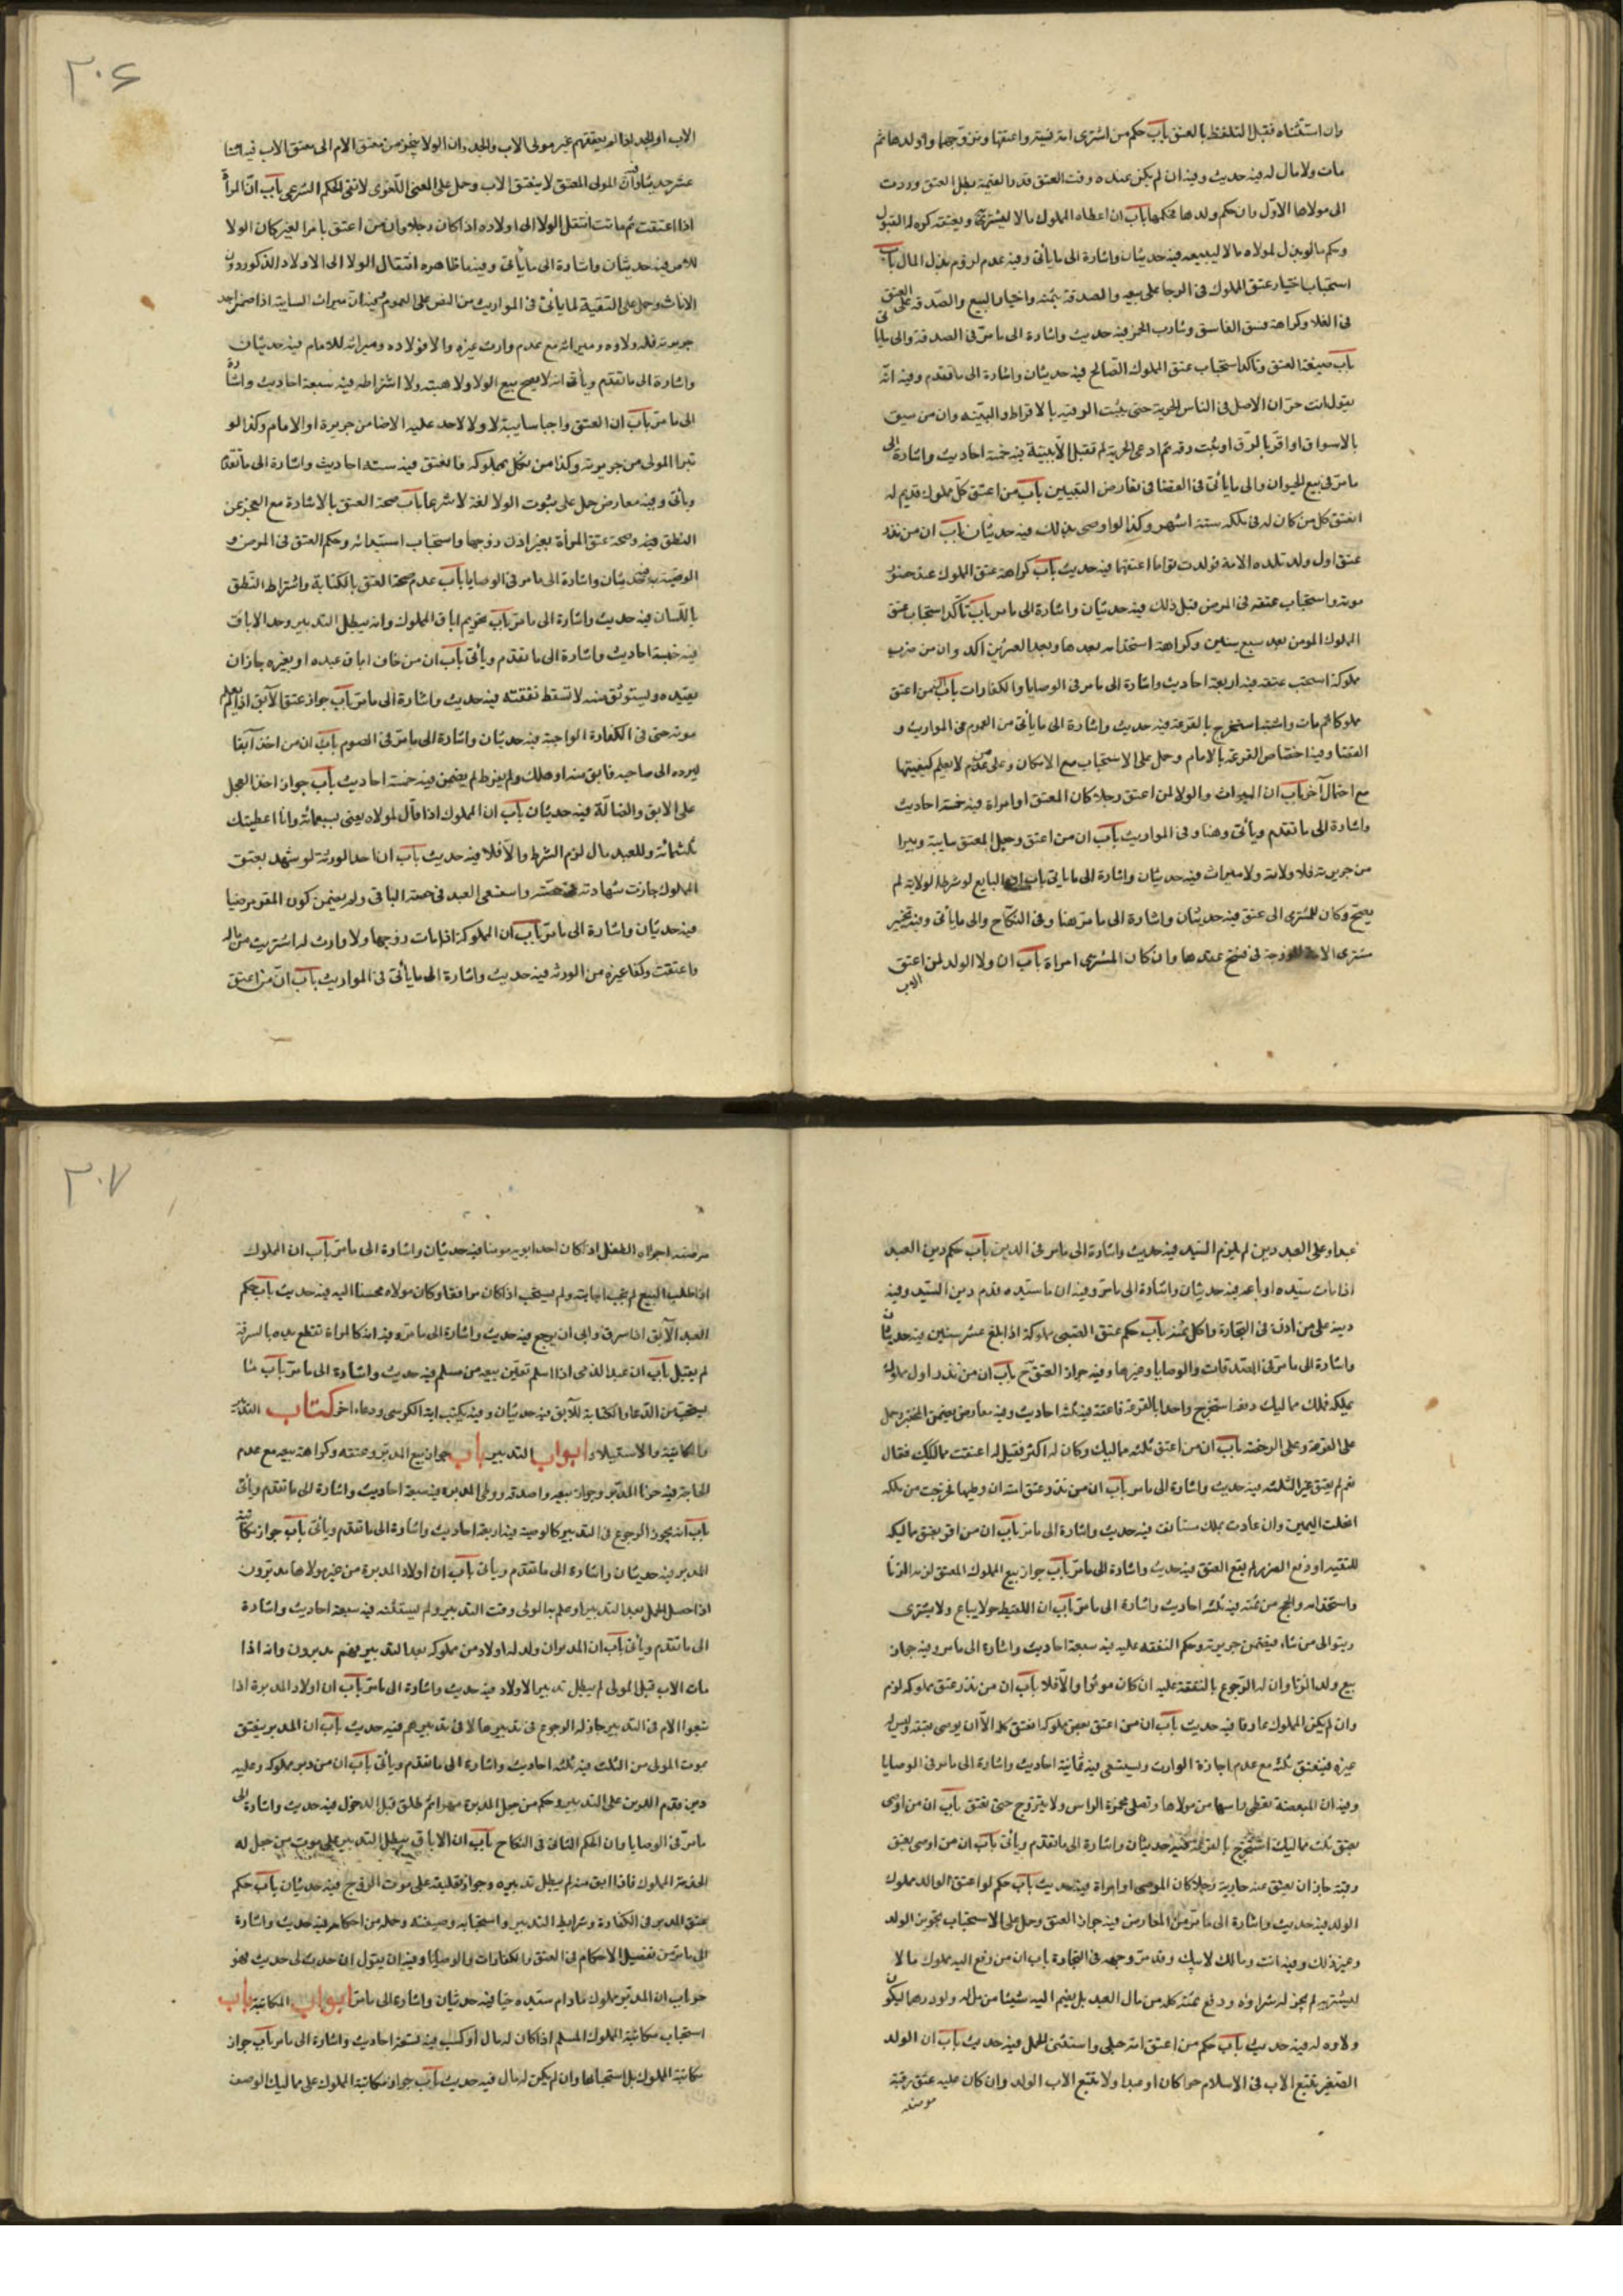 وان استثناه فقبل التلفظ بالعتق باب حكم من اشترى امة نسية واعتقها وتزوجها واولدها ثم
مات ولا مال له فيه حديث وفيه ان لم يكن عنده وقت العتق قدر القيمة بطل العتق وردت
الى مولاها الاول وان حكم ولدها حكمها باب ان اعطاء المملوك مالا ليشتريه ويعتقه كره له القبول
وحكم ما لو بذل لمولاه مالا ليبيعه فيه حديثان واشارة الى ما يأتى وفيه عدم لزوم بذل المال باب
استحباب اختيار عتق المملوك فى الرخا على بيعه والصدقة بثمنه واختيار البيع والصدقة على العتق
فى الغلا وكراهة عتق الفاسق وشارب الخمر فيه حديث واشارة الى ما مر فى الصدقة والى ما يأتى
باب صيغة العتق وتأكد استحباب عتق المملوك الصالح فيه حديثان واشارة الى ما تقدم وفيه انه
يقول انت حر ان الاصل فى الناس الحرية حتى يثبت الرقية بالاقرار او البينة وان من سيق
بالاسواق او اقر بالرق او ثبت رقه ثم ادعى الحرية لم تقبل الا ببينة فيه خمسة احاديث واشارة الى
ما مر فى بيع الحيوان والى ما يأتى فى القضا فى تعارض البينتين باب من اعتق كل مملوك قديم له
انعتق كل من كان له فى ملكه ستة اشهر وكذا لو اوصى بذلك فيه حديثان باب ان من نذر
عتق اول ولد تلده الامة فولدت توأما اعتقهما فيه حديث باب كراهة عتق المملوك عند حضور
موته واستحباب عتقه فى المرض قبل ذلك فيه حديثان واشارة الى ما مر باب تأكد استحباب عتق
المملوك المومن بعد سبع سنين وكراهة استخدامه بعدها وبعد العشرين اكد وان من ضرب
مملوكه استحب عتقه فيه اربعة احاديث واشارة الى ما مر فى الوصايا والكفارات باب ان من اعتق
مملوكا ثم مات واشتبه استخرج بالقرعة فيه حديث واشارة الى ما يأتى من العموم فى المواريث و
القضا وفيه اختصاص القرعة بالامام وحمل على الاستحباب مع الامكان وعلى من لا يعلم كيفيتها
مع احتمال آخر باب ان الميراث والولا لمن اعتق رجلا كان المعتق او امراة فيه خمسة احاديث
واشارة الى ما تقدم ويأتى هنا وفى المواريث باب ان من اعتق وجعل المعتق سايبة وتبرا
من جريرته فلا ولاية ولا ميراث فيه حديثان واشارة الى ما يأتى باب ان البايع لو شرط الولاية لم
يصح وكان للمشترى الى عتق فيه حديثان واشارة الى ما مر هنا وفى النكاح والى ما يأتى وفيه تخيير
مشترى الامة المزوجة فى فسخ عقدها وان كان المشترى امراة باب ان ولا الولد لمن اعتق
الاب
٢٠۶
الاب او الجد اذا لم يعتقهم غير مولى الاب والجد وان الولا ينجر من معتق الام الى معتق الاب فيه اثنا
عشر حديثا وان المولى المعتق لا يعتق الاب وحمل على المعنى اللغوى لا نفى الحكم الشرعى باب ان المرأة
اذا اعتقت ثم ماتت انتقل الولا الى اولاده اذا كان رجلا وان من اعتق بامر الغير كان الولا
للآمر فيه حديثان واشارة الى ما يأتى وفيه ما ظاهره انتقال الولا الى الاولاد الذكور دون
الاناث وحمل على التقية لما يأتى فى المواريث من النص على العموم ان ميراث السايبة اذا ضمن احد
جريرته فله ولاوه وميراثه مع عدم وارث غيره والا فولاوه وميراثه للامام فيه حديثان
واشارة الى ما تقدم ويأتى انه لا يصح بيع الولا ولا هبته ولا اشتراطه فيه سبعة احاديث واشارة
الى ما مر باب ان العتق واجبا سايبة لا ولا لاحد عليه الا ضامن جريرة او الامام وكذا لو
تبرا المولى من جريرته وكذا من نكل بمملوكه فانعتق فيه ستة احاديث واشارة الى ما تقدم
ويأتى وفيه معارض حمل على ثبوت الولا لغة لا شرعا باب صحة العتق بالاشارة مع العجز عن
النطق فيه وصحة عتق المرأة بغير اذن زوجها واستحباب استيذانه وحكم العتق فى المرض و
الوصية به فيه حديثان واشارة الى ما مر فى الوصايا باب عدم صحة العتق بالكتابة واشتراط النطق
باللسان فيه حديث واشارة الى ما مر باب تحريم اباق المملوك وانه يبطل التدبير وحد الاباق
فيه خمسة احاديث واشارة الى ما تقدم ويأتى باب ان من خاف اباق عبده او بعيره جاز ان
يقيده ويستوثق منه لا تسقط نفقته فيه حديث واشارة الى ما مر باب جواز عتق الآبق اذا لم يعلم
موته حتى فى الكفارة الواجبة فيه حديثان واشارة الى ما مر فى الصوم باب ان من اخذ آبقا
ليرده الى صاحبه فابق منه او هلك ولم يفرط لم يضمن فيه خمسة احاديث باب جواز اخذ الجعل
على الابق والضالة فيه حديثان باب ان المملوك اذا قال لمولاه بعنى بسبعمائة وانا اعطيتك
ثلثمائة وللعبد مال لزم الشرط والا فلا فيه حديث باب ان احد الورثة لو شهد بعتق
المملوك جازت شهادته فى حصته واستسعى العبد فى حصة الباقى ولم يضمن كون المقر مرضيا
فيه حديثان واشارة الى ما مر باب ان المملوكة اذا مات زوجها ولا وارث له اشتريت من ماله
واعتقت وكذا غيره من الورثه فيه حديث واشارة الى ما يأتى فى المواريث باب ان من اعتق
عبدا وعلى العبد دين لم يلزم السيد فيه حديث واشارة الى ما مر فى الدين باب حكم دين العبد
اذا مات سيده او باعه فيه حديثان واشارة الى ما مر وفيه ان مات سيده قدم دين السيد وفيه
دينه على من اذن فى التجارة واكل ثمنه باب حكم عتق الصبى مملوكه اذا بلغ عشر سنين فيه حديثان
واشارة الى ما مر فى الصدقات والوصايا وغيرها وفيه جواز العتق ح باب ان من نذر اول مملوك
يملكه فملك مماليك دفعة استخرج واحدا بالقرعة فاعتقه فيه ثلثة احاديث وفيه معارض يتضمن التخيير وحمل
على القرعة وعلى الرخصة باب ان من اعتق ثلثة مماليك وكان له اكثر فقيل له اعتقت مماليكك فقال
نعم لم يعتق غير الثلثه فيه حديث واشارة الى ما مر باب ان من نذر عتق امته ان وطيها فخرجت من ملكه
انحلت اليمين وان عادت بملك مستانف فيه حديث واشارة الى ما مر باب ان من اقر بعتق مماليكه
للتقيه او دفع الضرر لم يقع العتق فيه حديث واشارة الى ما مر باب جواز بيع المملوك المعتق لزنا
واستخدامه والحج من ثمنه فيه ثلثه احاديث واشارة الى ما مر باب ان اللقيط حر لا يباع ولا يشترى
ويتوالى من شاء فيضمن جريرته وحكم النفقه عليه فيه سبعة احاديث واشارة الى ما مر وفيه جواز
بيع ولد الزنا وان له الرجوع بالنفقة عليه ان كان موسرا والا فلا باب ان من نذر عتق مملوكه لزم
وان لم يكن المملوك عارفا فيه حديث باب ان من اعتق بعض مملوكه انعتق كله الا ان يوصى بعتقه وليس له
غيره فينعتق ثلثه مع عدم اجازة الوارث ويستسعى فيه ثمانية احاديث واشارة الى ما مر فى الوصايا
وفيه ان المبعضة تغطى راسها من مولاها وتصلى مخمرة الراس ولا يتزوج حتى تعتق باب ان من اوصى
بعتق ثلث مماليك استخرج بالقرعة فيه حديثان واشارة الى ما تقدم ويأتى باب ان من اوصى بعتق
رقبة جاز ان يعتق عنه جارية رجلا كان الموصى او امراة فيه حديث باب حكم لو اعتق الوالد مملوك
الولد فيه حديث واشارة الى ما مر من المعارض فيه جواز العتق وحمل على الاستحباب تجويز الولد
وغير ذلك وفيه انت ومالك لابيك وقد مر وجهه فى التجارة باب ان من دفع اليه مملوك مالا
ليشتريه لم يجز له شراوه ودفع ثمنه كله من مال العبد بل يضم اليه شيئا من ماله ولو درهما ليكون
ولاوه له فيه حديث باب حكم من اعتق امة حبلى واستثنى الحمل فيه حديث باب ان الولد
الصغير يتبع الاب فى الاسلام حرا كان او عبدا ولا يتبع الاب الولد وان كان عليه عتق رقبة
مومنه
٢٠٧
مرضعه اجزاه الطفل اذا كان احد ابويه مومنا فيه حديثان واشارة الى ما مر باب ان المملوك
اذا طلب البيع لم يجب اجابته ولم يستحب اذا كان موافقا وكان مولاه محسنا اليه فيه حديث باب حكم
العبد الآبق اذا سرق وابى ان يرجع فيه حديث واشارة الى ما مر وفيه انه كالمراة تقطع يده بالسرقة
لم يقبل باب ان عبد الذمى اذا اسلم تعين بيعه من مسلم فيه حديث واشارة الى ما مر باب ما
يستحب من الدعا والكتابة للآبق فيه حديثان وفيه يكتب اية الكرسى ودعاء اخر كتاب التدبير
والمكاتبة والاستيلاد ابواب التدبير باب جواز بيع المدبر وعتقه وكراهة بيعه مع عدم
الحاجة فيه حرنا المدبر وجواز بيعه واصدقه ووطى المدبرة فيه سبعة احاديث واشارة الى ما تقدم ويأتى
باب انه يجوز الرجوع فى التدبير كالوصية فيه اربعة احاديث واشارة الى ما تقدم ويأتى باب جواز مكاتبة
المدبر فيه حديثان واشارة الى ما تقدم ويأتى باب ان اولاد المدبرة من غير مولاها مدبرون
اذا حصل الحمل بعد التدبير او علم به المولى وقت التدبير ولم يستثنه فيه سبعة احاديث واشارة
الى ما تقدم ويأتى باب ان المدبر ان ولد له اولاد من مملوكه بعد التدبير فهم مدبرون وانه اذا
مات الاب قبل المولى لم يبطل تدبير الاولاد فيه حديث واشارة الى ما مر باب ان اولاد المدبرة اذا
تبعوا الام فى التدبير جاز له الرجوع فى تدبيرها لا فى تدبيرهم فيه حديث باب ان المدبر ينعتق
بموت المولى من الثلث فيه ثلثه احاديث واشارة الى ما تقدم ويأتى باب ان من دبر مملوكه وعليه
دين قدم الدين على التدبير وحكم من جعل المدبرة مهرا ثم طلق قبل الدخول فيه حديث واشارة الى
ما مر فى الوصايا وان الحكم الثانى فى النكاح باب ان الاباق يبطل التدبير على موت من جعل له
الخدمة المملوك فاذا ابق منه لم يبطل تدبيره وجواز تعليقه على موت الزوج فيه حديثان باب حكم
عتق المدبر فى الكفارة وشرايط التدبير واستحبابه وصيغته وجملة من احكامه فيه حديث واشارة
الى ما مر من تفصيل الاحكام فى العتق والكفارات والوصايا وفيه ان يقول ان حدث بى حدث فهو
حر باب ان المدبر مملوك ما دام سيده حيا فيه حديثان واشارة الى ما مر ابواب المكاتبة باب
استحباب مكاتبة المملوك المسلم اذا كان له مال او كسب فيه تسعة احاديث واشارة الى ما مر باب جواز
مكاتبة المملوك بل استحبابها وان لم يكن له مال فيه حديث باب جواز مكاتبة المملوك على مماليك الوصف